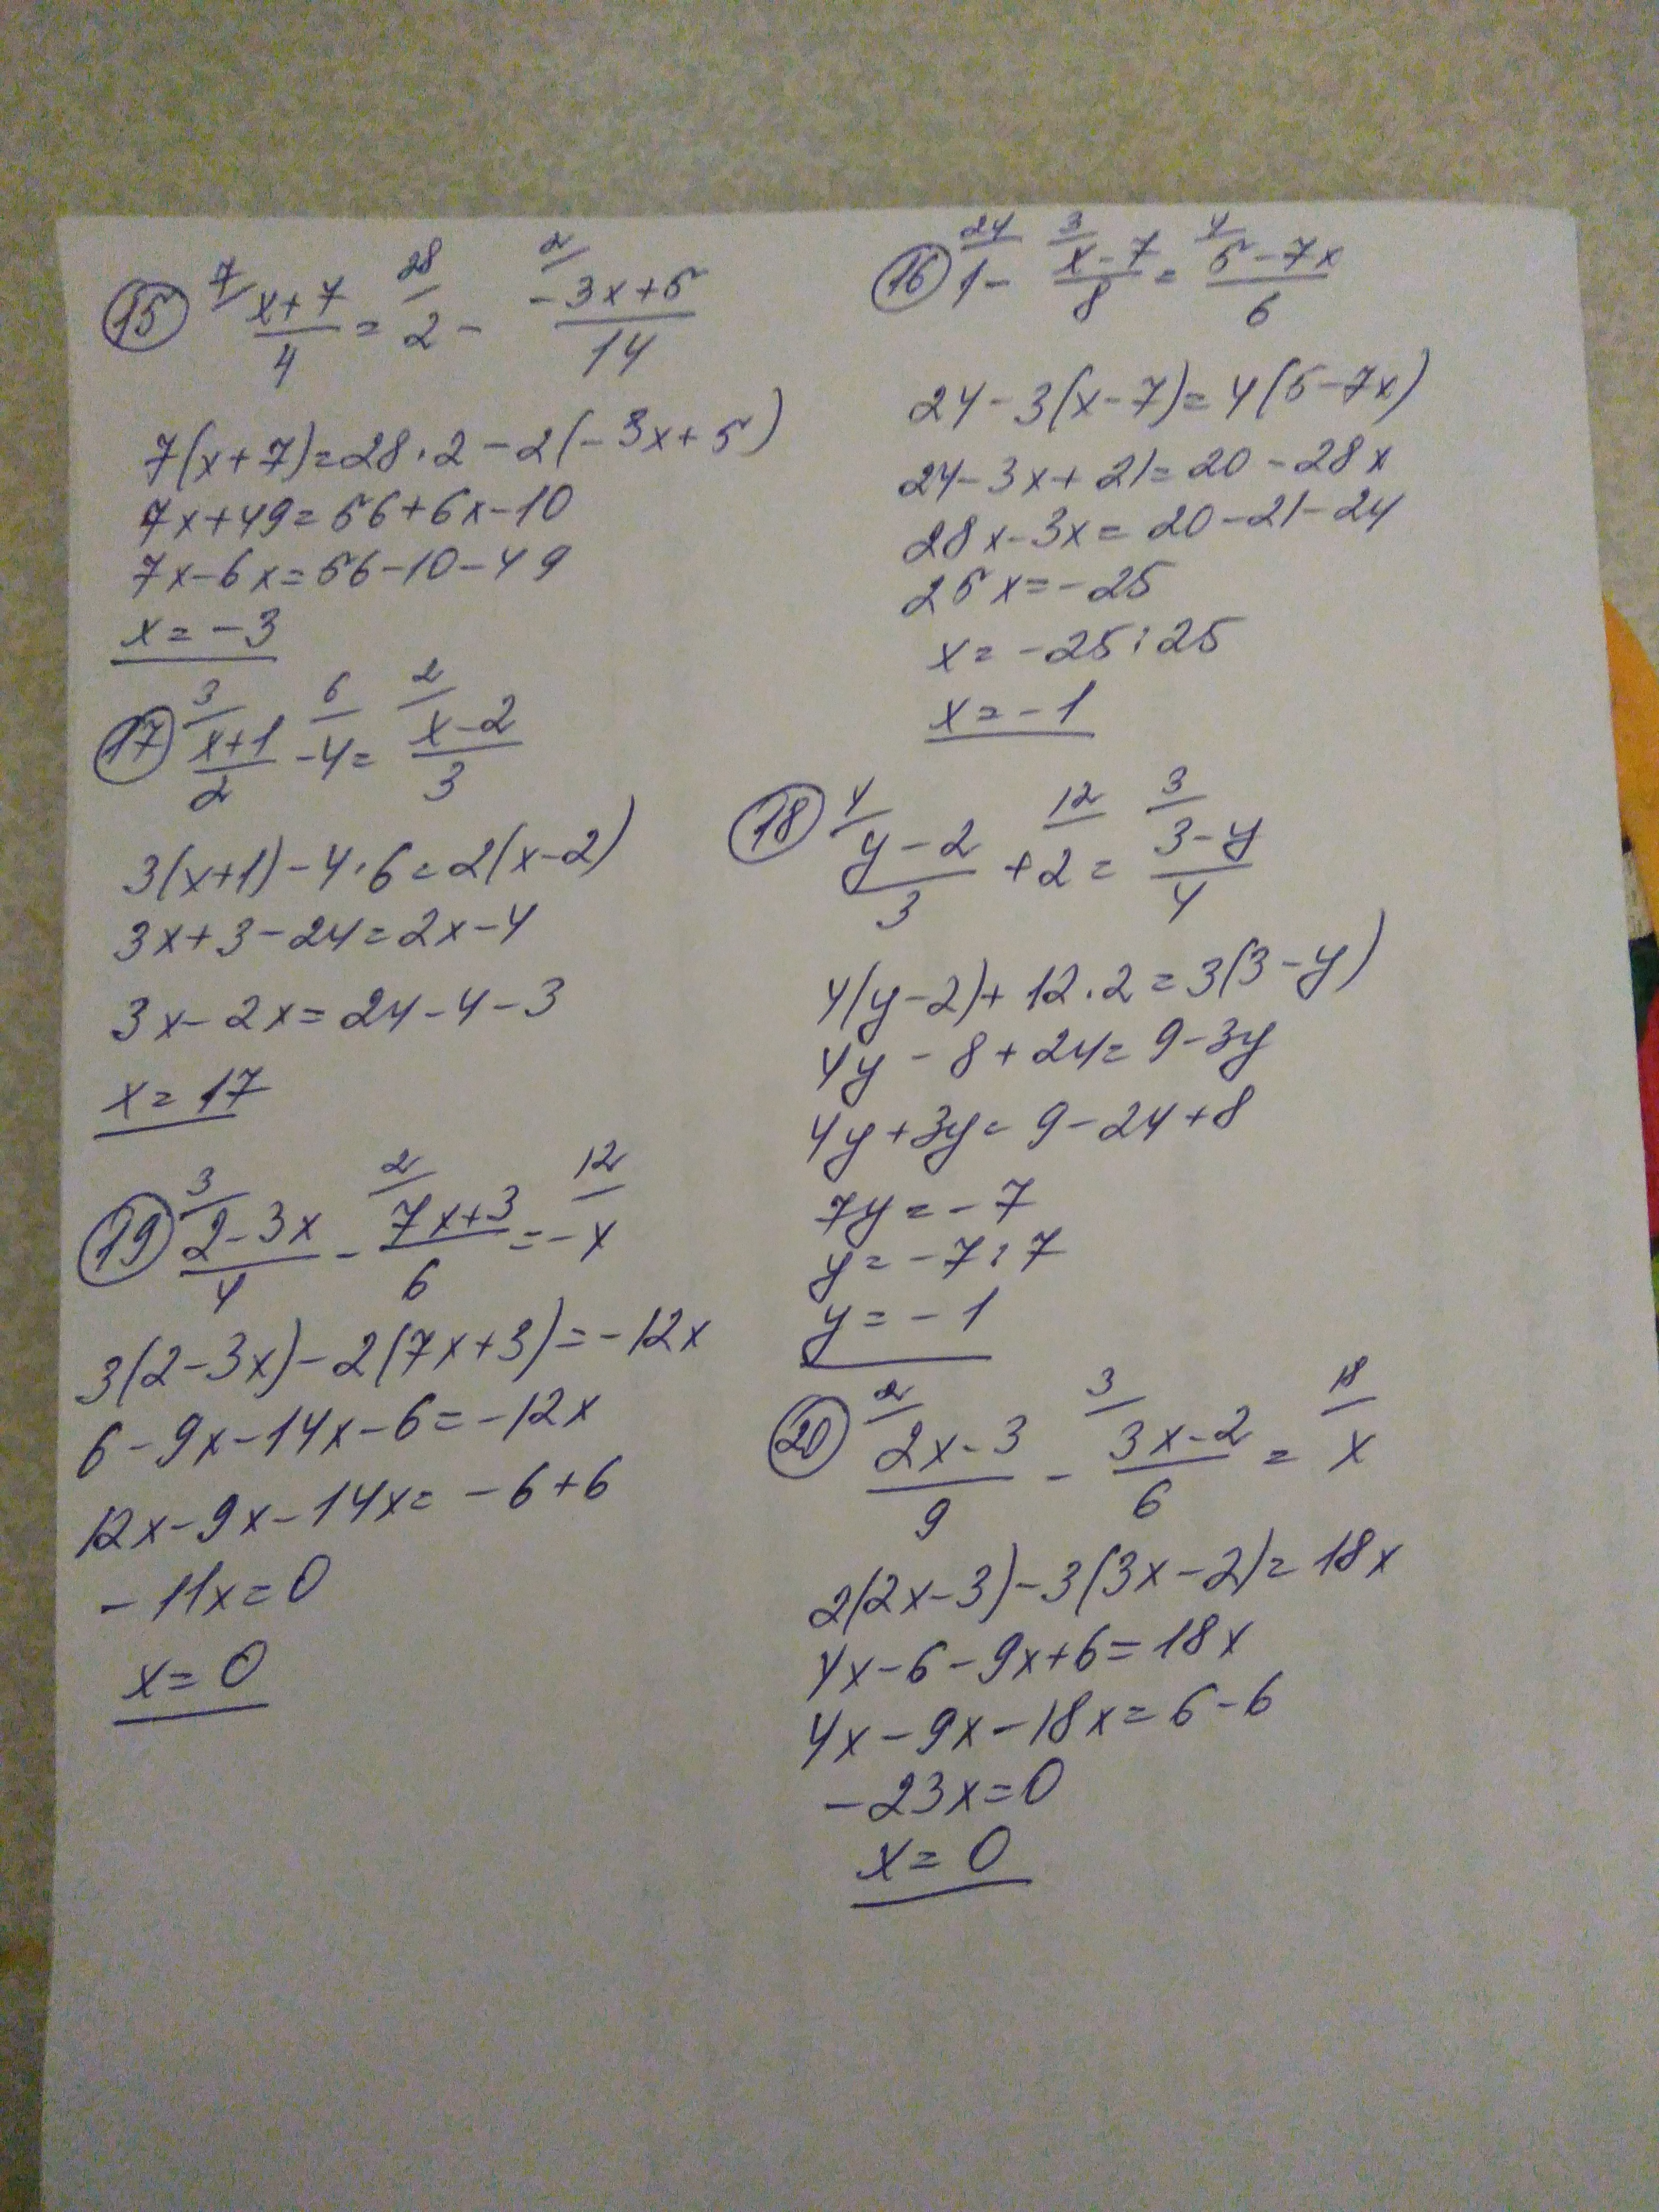 15 7/ 28/ 2/
(x+7)/4 = 2 - (-3x+5)/14
7(x+7)=28·2-2(-3x+5)
7x+49=56+6x-10
7x-6x=56-10-49
x=-3
16 24/ 3/ 4/
1-(x-7)/8=(5-7x)/6
24-3(x-7)=4(5-7x)
24-3x+21=20-28x
28x-3x=20-21-24
25x=-25
x=-25:25
x=-1
17 3/ 6/ 2/
(x+1)/2-4=(x-2)/3
3(x+1)-4·6=2(x-2)
3x+3-24=2x-4
3x-2x=24-4-3
x=17
18 4/ 12/ 3/
(y-2)/3+2=(3-y)/4
4(y-2)+12·2=3(3-y)
4y-8+24=9-3y
4y+3y=9-24+8
7y=-7
y=-7:7
y=-1
19 3/ 2/ 12/
(2-3x)/4-(7x+3)/6=-x
3(2-3x)-2(7x+3)=-12x
6-9x-14x-6=-12x
12x-9x-14x=-6+6
-11x=0
x=0
20 2/ 3/ 18/
(2x-3)/9-(3x-2)/6=x
2(2x-3)-3(3x-2)=18x
4x-6-9x+6=18x
4x-9x-18x=6-6
-23x=0
x=0